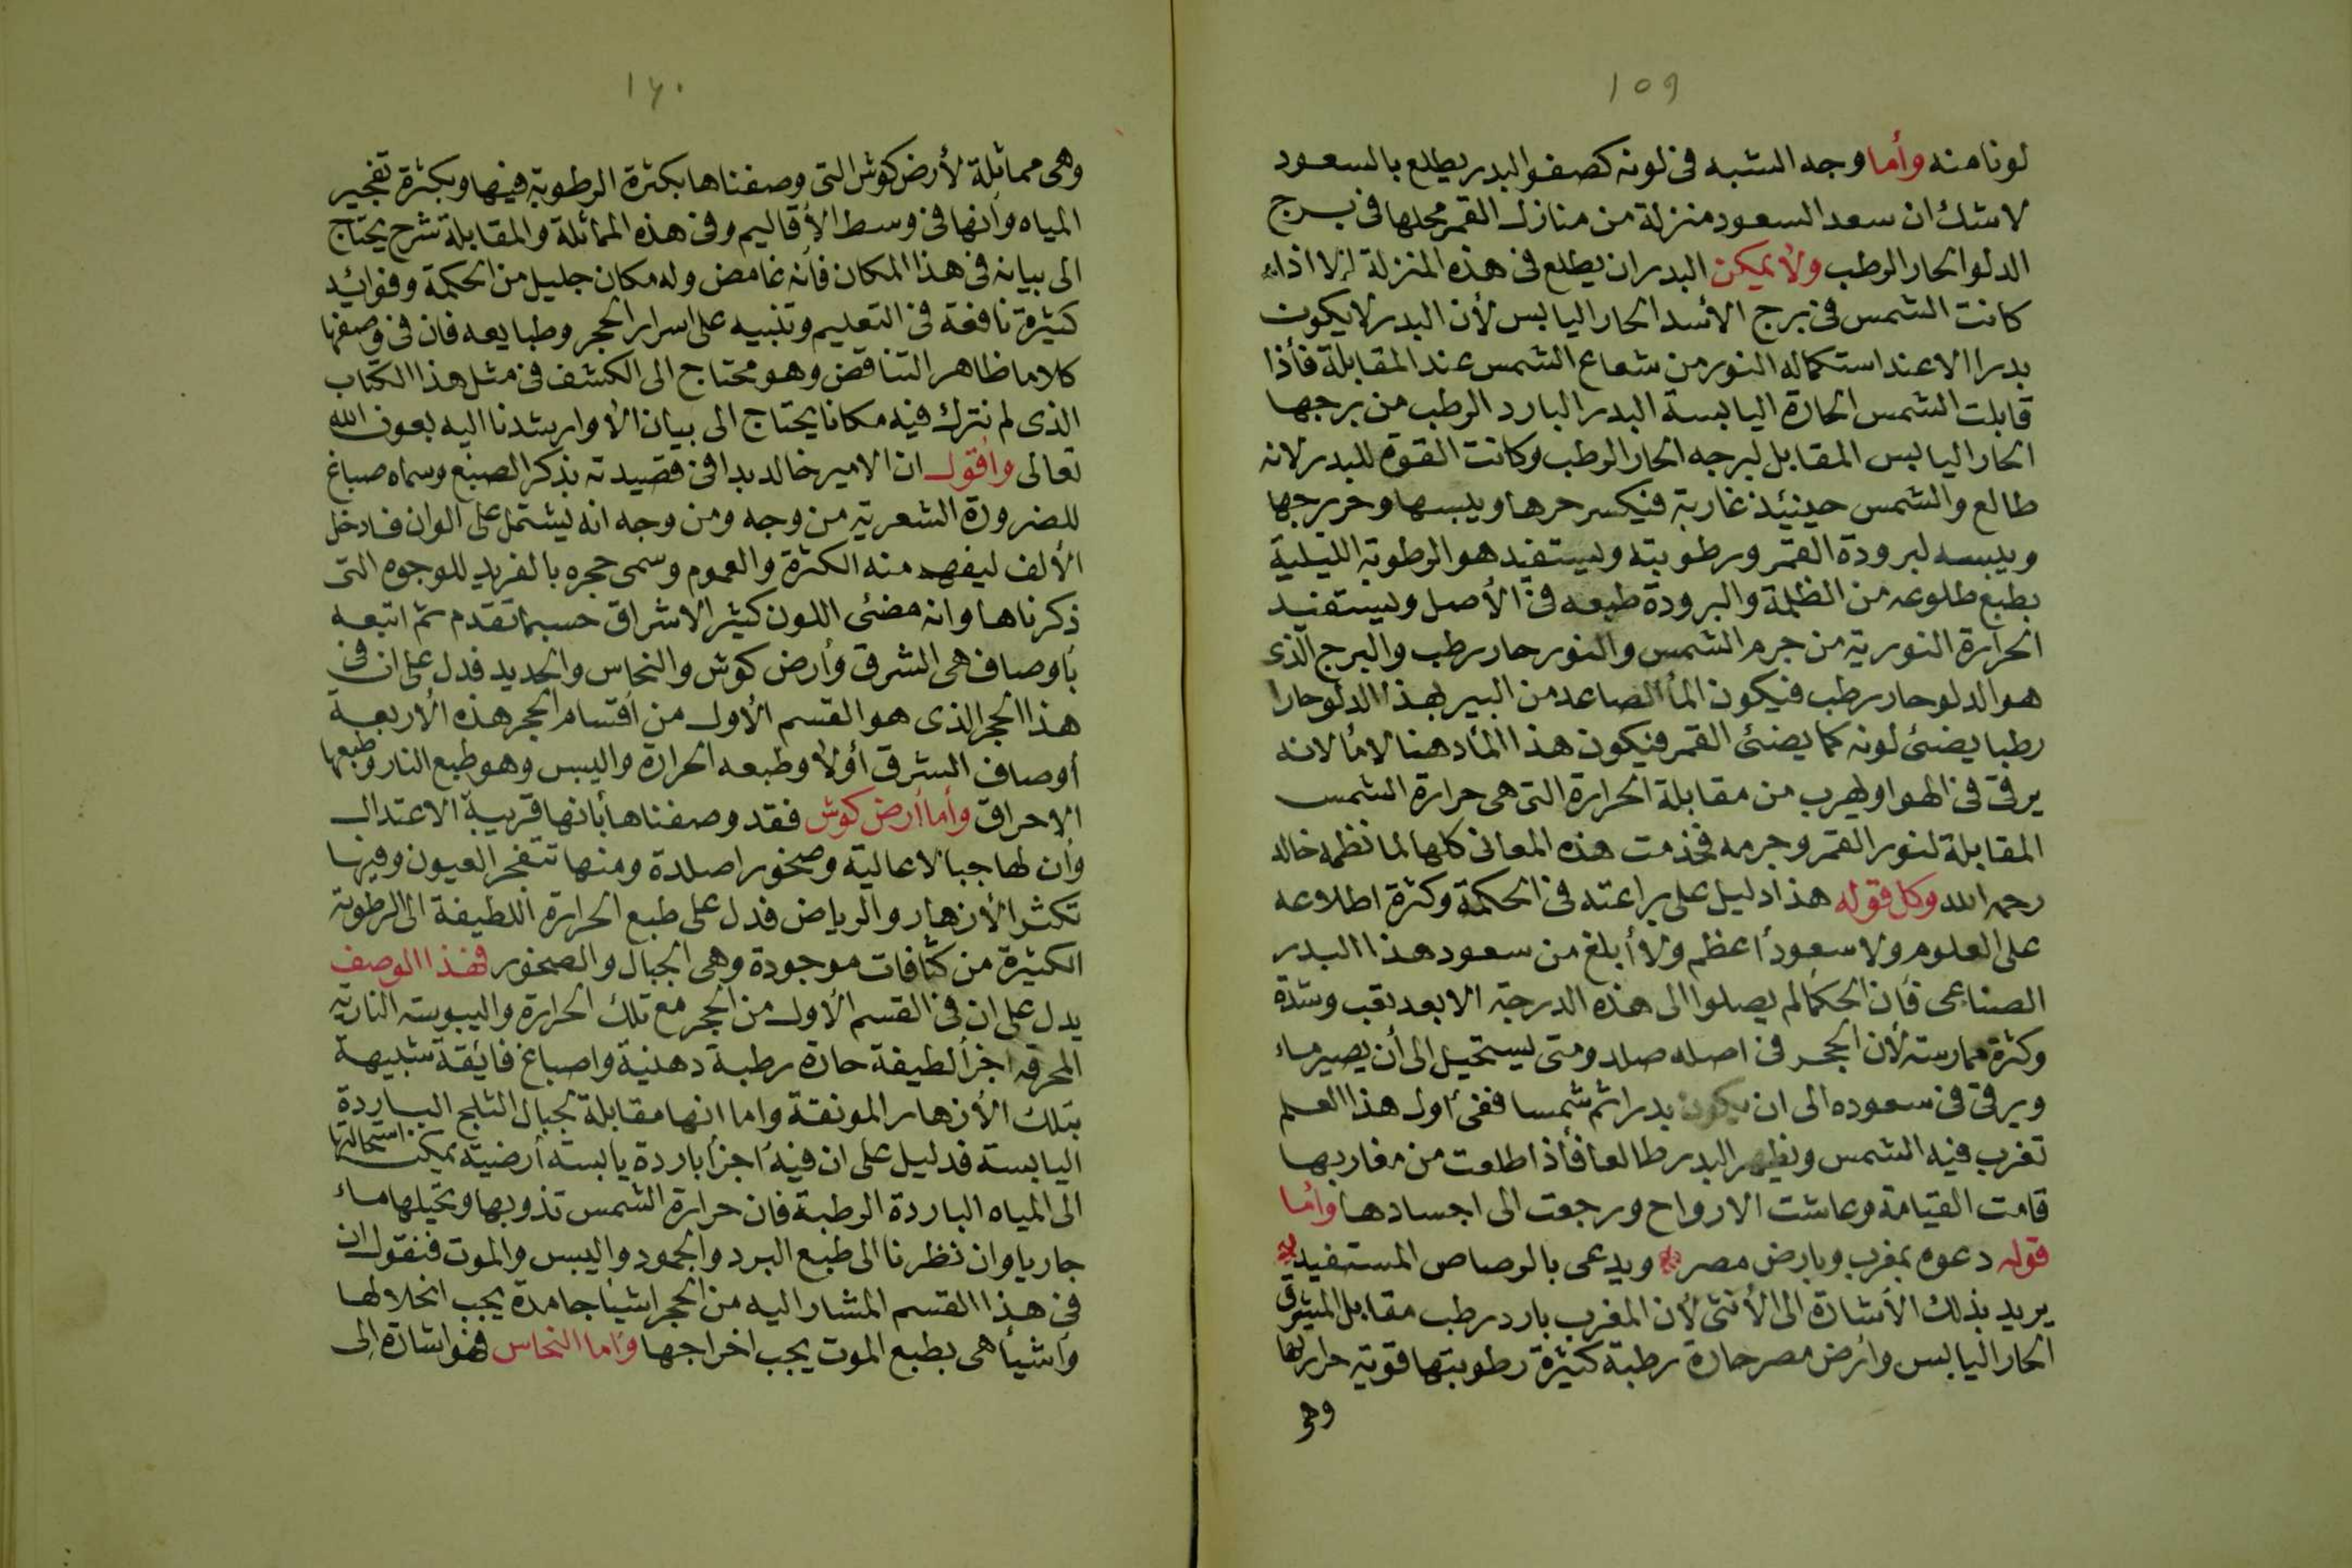 ١٥٩
لونا منه وأما وجه الشبه فى لونه كصفو البدر يطلع بالسعود
لاشك ان سعد السعود منزلة من منازل القمر محلها فى برج
الدلو الحار الرطب ولا يمكن البدر ان يطلع فى هذه المنزلة إلا اذا
كانت الشمس فى برج الأسد الحار اليابس لأن البدر لا يكون
بدرا الا عند استكماله النور من شعاع الشمس عند المقابلة فأذا
قابلت الشمس الحارة اليابسة البدر البارد الرطب من برجها
الحار اليابس المقابل لبرجه الحار الرطب وكانت القوة للبدر لانه
طالع والشمس حينئذ غاربة فيكسر حرها ويبسها وحر برجها
ويبسه لبرودة القمر ورطوبته ويستفيد هو الرطوبة الليلية
بطبع طلوعه من الظلمة والبرودة طبعه فى الأصل ويستفيد
الحرارة النورية من جرم الشمس والنور حار رطب والبرج الذى
هو الدلو حار رطب فيكون المأ الصاعد من البير بهذا الدلو حارا
رطبا يضئ لونه كما يضئ القمر فيكون هذا المأ دهنا لا مأ لانه
يرقى فى الهوا ويهرب من مقابلة الحرارة التى هى حرارة الشمس
المقابلة لنور القمر وجرمه فخذمت هذه المعانى كلها لما نظمه خالد
رحمه الله وكل قوله هذا دليل على براعته فى الحكمة وكثرة اطلاعه
على العلوم ولا سعود أعظم ولا أبلغ من سعود هذا البدر
الصناعى فأن الحكما لم يصلوا الى هذه الدرجة الا بعد تعب وشدة
وكثرة ممارسته لأن الحجر فى اصله صلد ومتى يستحيل الى أن يصير ماء
ويرقى فى سعوده الى ان يكون بدرا ثم شمسا ففى أول هذا العلم
تغرب فيه الشمس ويظهر البدر طالعا فأذا طلعت من مغاربها
قامت القيامة وعاشت الارواح ورجعت الى اجسادها وأما
قوله دعوه بمغرب وبارض مصر * ويدعى بالرصاص المستفيد *
يريد بذلك الأشارة الى الأنثى لأن المغرب بارد رطب مقابل المشرق
الحار اليابس وأرض مصر حارة رطبة كثيرة رطوبتها قوية حرارتها
وهى
١٦٠
وهى مماثلة لأرض كوش التى وصفناها بكثرة الرطوبة فيها وبكثرة تفجير
المياه وأنها فى وسط الأقاليم وفى هذه المماثلة والمقابلة شرح يحتاج
الى بيانه فى هذا المكان فأنه غامض وله مكان جليل من الحكمة وفوائد
كثيرة نافعة فى التعليم وتنبيه على اسرار الحجر وطبايعه فان فى وصفها
كلاما ظاهر التناقض وهو محتاج الى الكشف فى مثل هذا الكتاب
الذى لم نترك فيه مكانا يحتاج الى بيان الا وارشدنا اليه بعون الله
تعالى وأقول ان الامير خالد بدا فى قصيدته بذكر الصبغ وسماه صباغ
للضرورة الشعرية من وجه ومن وجه انه يشتمل على الوان فادخل
الألف ليفهم منه الكثرة والعموم وسمى حجره بالفريد للوجوه التى
ذكرناها وانه مضئى اللون كثير الاشراق حسبما تقدم ثم اتبعه
بأوصاف هى الشرق وأرض كوش والنحاس والحديد فدل على ان فى
هذا الحجر الذى هو القسم الأول من أقسام الحجر هذه الأربعة
أوصاف الشرق أولا وطبعه الحرارة واليبس وهو طبع النار وطبعها
الاحراق وأما أرض كوش فقد وصفناها بأنها قريبة الاعتدال
وأن لها جبالا عالية وصخورا صلدة ومنها تتفجر العيون وفيها
تكثر الأزهار والرياض فدل على طبع الحرارة اللطيفة الى الرطوبة
الكثيرة من كثافات موجودة وهى الجبال والصخور فهذا الوصف
يدل على ان فى القسم الأول من الحجر مع تلك الحرارة واليبوسة النارية
المحرقة اجزأ لطيفة حارة رطبة دهنية واصباغ فايقة شبيهة
بتلك الأزهار المونقة واما انها مقابلة لجبال الثلج الباردة
اليابسة فدليل على ان فيه اجزأ باردة يابسة أرضية يمكن استحالتها
الى المياه الباردة الرطبة فان حرارة الشمس تذوبها وتحيلها ماء
جاريا وان نظرنا الى طبع البرد والجمود واليبس والموت فنقول ان
فى هذا القسم المشار اليه من الحجر اشيأ جامدة يجب انحلالها
وأشيأ هى بطبع الموت يجب اخراجها وأما النحاس فهو اشارة الى